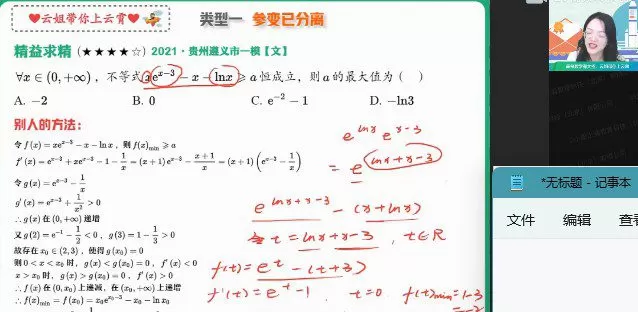 ♥云姐带你上云霄♥
类型一 参变已分离
精益求精 (★★★★☆) 2021·贵州遵义市一模【文】
∀x∈(0,+∞)，不等式xe^{x-3}-x-lnx≥a恒成立，则a的最大值为（ ）
A. -2 B. 0 C. e^{-2}-1 D. -ln3
别人的方法：
令f(x)=xe^{x-3}-x-lnx，则f(x)_{min}≥a
f'(x)=e^{x-3}+xe^{x-3}-1-\frac{1}{x}=(x+1)e^{x-3}-\frac{x+1}{x}=(x+1)(e^{x-3}-\frac{1}{x})
令g(x)=e^{x-3}-\frac{1}{x}
g'(x)=e^{x-3}+\frac{1}{x^2}>0
∴g(x)在(0,+∞)递增
又g(2)=e^{-1}-\frac{1}{2}<0，g(3)=1-\frac{1}{3}>0
故存在x_0∈(2,3)，使得g(x_0)=0
则0<x<x_0时，g(x)<g(x_0)=0，f'(x)<0
x>x_0时，g(x)>g(x_0)=0，f'(x)>0
∴f(x)在(0,x_0)上递减，在(x_0,+∞)上递增
∴f(x)_{min}=f(x_0)=x_0e^{x_0-3}-x_0-lnx_0
e^{lnx} e^{x-3}
=e^{lnx+x-3}
e^{lnx+x-3}-(x+lnx)
令t=lnx+x-3，t∈R
f(t)=e^t-(t+3)
f'(t)=e^t-1，t=0 f(t)_{min}=1-3
=-2
*无标题 - 记事本
文件 编辑 查